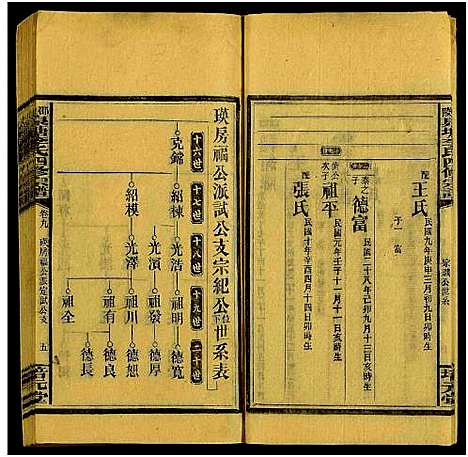 配
王氏
民國九年庚申三月初九日卯時生
子一 富
泰之子
德富
民國二十八年己卯九月十三日亥時生
備公次子
祖平
民國元年壬子十一月十一日亥時生
配
張氏
民國十年辛酉四月十四日卯時生
瑛房福公派試公支宗紀公位下世系表
十六世
十七世
十八世
十九世
二十世
克錦
紹棟
光浩
祖明
德寬
光濱
祖發
德厚
紹模
光澤
祖川
德恕
祖有
德良
祖全
德長
卷九
瑛房福公派定試公支
五